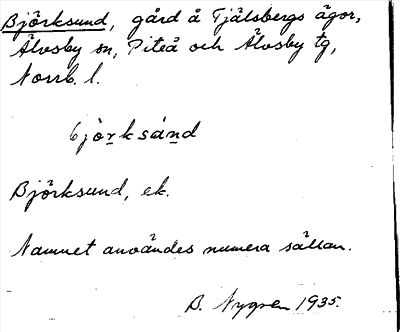 Björksund, gård å Tjälsbergs ägor,
Älvsby sn, Piteå och Älvsby tg,
Norrb. l.
bjòṟksánḏ
Björksund, ek.
Namnet användes numera sällan.
B. Nygren 1935.